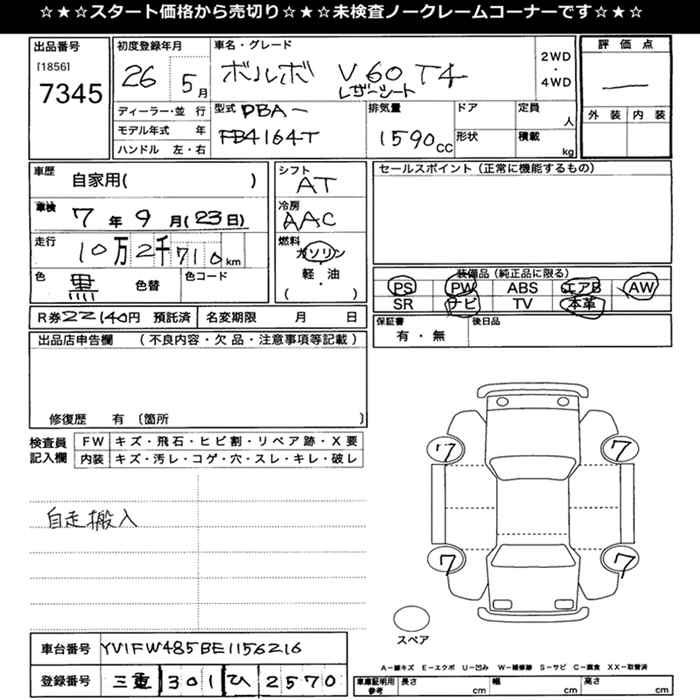 ☆★☆★スタート価格から売切り☆★☆★未検査ノークレームコーナーです☆★☆
出品番号
[1856]
7345
初度登録年月
26 5月
ディーラー・並 行
モデル年式 年
ハンドル 左・右
車名・グレード
ボルボ V60 T4
レザーシート
2WD
・
4WD
型式 DBA-
FB4164T
排気量
1590cc
ドア
形状
定員
人
積載
kg
評 価 点
—
外 装 内 装
車歴
自家用( )
車検 7年9月(23日)
走行 10万2千710km
色 黒 色替 色コード
シフト
AT
冷房
AAC
燃料
ガソリン
軽・油
( )
セールスポイント (正常に機能するもの)
装備品 (純正品に限る)
PS PW ABS エアB AW
SR ナビ TV 本革
R券22140円 預託済 名変期限 月 日
保証書
有・無
後日品
出品店申告欄 (不良内容・欠品・注意事項等記載)
修復歴 有 〔箇所 〕
検査員
記入欄
FW キズ・飛石・ヒビ割・リペア跡・X要
内装 キズ・汚レ・コゲ・穴・スレ・キレ・破レ
自走搬入
7 7
7 7
スペア
車台番号 YV1FW485BE1156216
登録番号 三重 301 ひ 2570
A−線キズ E−エクボ U−凹み W−補修跡 S−サビ C−腐食 XX−取替済
車庫証明用
参考
長さ cm 幅 cm 高さ cm